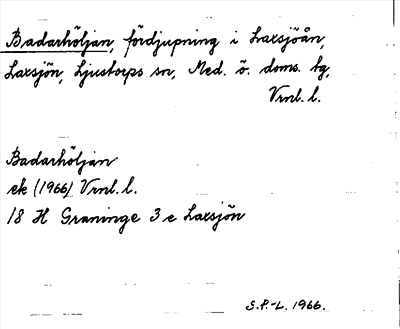 Badarhöljan, fördjupning i Laxsjöån,
Laxsjön, Ljustorps sn, Med. ö. doms. hg,
Vrnl. l.
Badarhöljan
ek (1966) Vrnl. l.
18 H Graninge 3 e Laxsjön
S.P.-L. 1966.